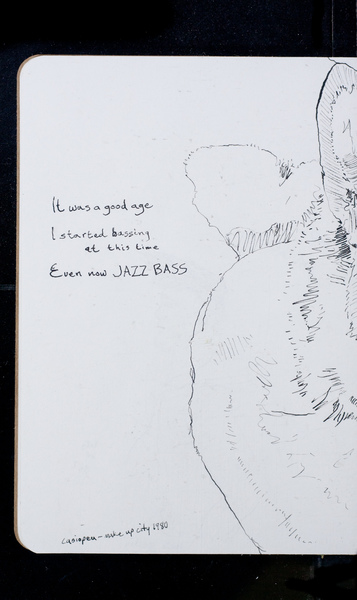 It was a good age
I started bassing
at this time
Even now JAZZ BASS
casiopea - make up city 1980